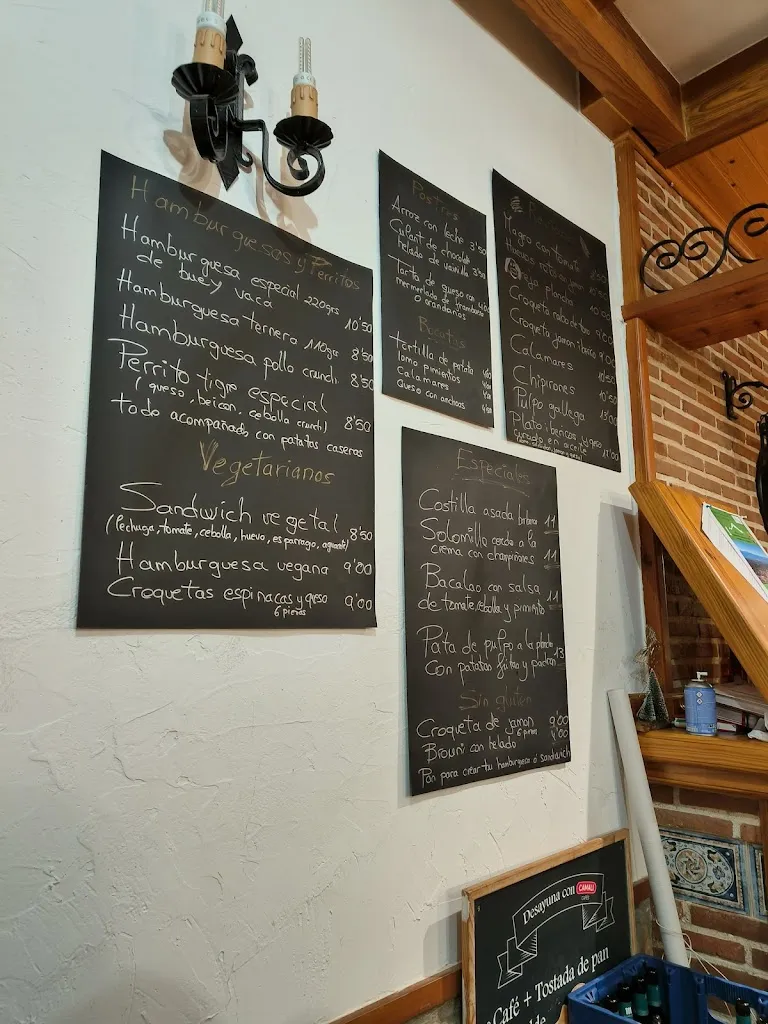 Hamburguesas y Perritos
Hamburguesa especial 220grs
de buey vaca 10'50
Hamburguesa ternero 110grs 8'50
Hamburguesa pollo crunch 8'50
Perrito tigre especial
(queso, beicon, cebolla crunch) 8'50
todo acompañado, con patatas caseras
Vegetarianos
Sandwich vegetal 8'50
(lechuga, tomate, cebolla, huevo, esparrago, aguacate)
Hamburguesa vegana 9'00
Croquetas espinacas y queso 9'00
6 piezas
Postres
Arroz con leche 3'50
Culant de chocolate
helado de vainilla 3'50
Tarta de queso con
mermelada de frambuesa
o arandanos
Bocatas
tortilla de patata
lomo pimientos
calamares
queso con anchoas
Magro con tomate
plancha
Croqueta rabo de toro 9'00
Croqueta jamon iberico 9'00
Calamares 10'50
Chipirones 10'50
Pulpo gallega 13'00
Plato ibericos y queso
curado en aceite
Especiales
Costilla asada barbacoa 11
Solomillo cerdo a la
crema con champiñones 11
Bacalao con salsa
de tomate, cebolla y pimiento 11
Pata de pulpo a la plancha 13
con patatas fritas y padron
Sin gluten
Croqueta de jamon 9'00
6 piezas
Brouni con helado
Pan para crear tu hamburguesa ó sandwich
Desayuna con CAMALI
Café + Tostada de pan